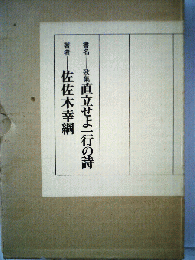 書名──歌集 直立せよ一行の詩
著者──佐佐木幸綱